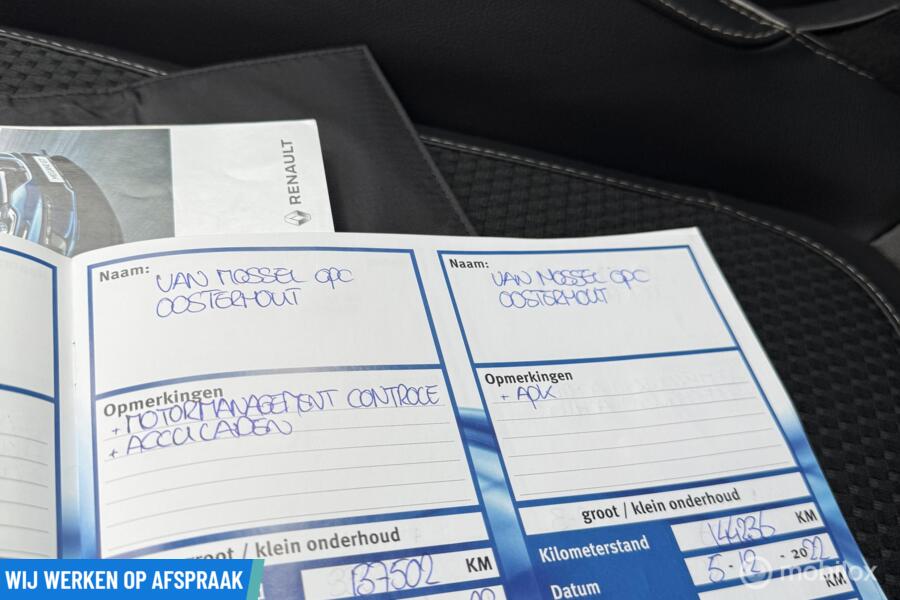 RENAULT
Naam:
VAN MOSSEL OPC
OOSTERHOUT
Opmerkingen
+ MOTORMANAGEMENT CONTROLE
+ ACCU LADEN
groot / klein onderhoud
137502 KM
Naam:
VAN MOSSEL OPC
OOSTERHOUT
Opmerkingen
+ APK
groot / klein onderhoud
Kilometerstand 144236 KM
Datum 5-12-2022
KM
WIJ WERKEN OP AFSPRAAK
mobilox